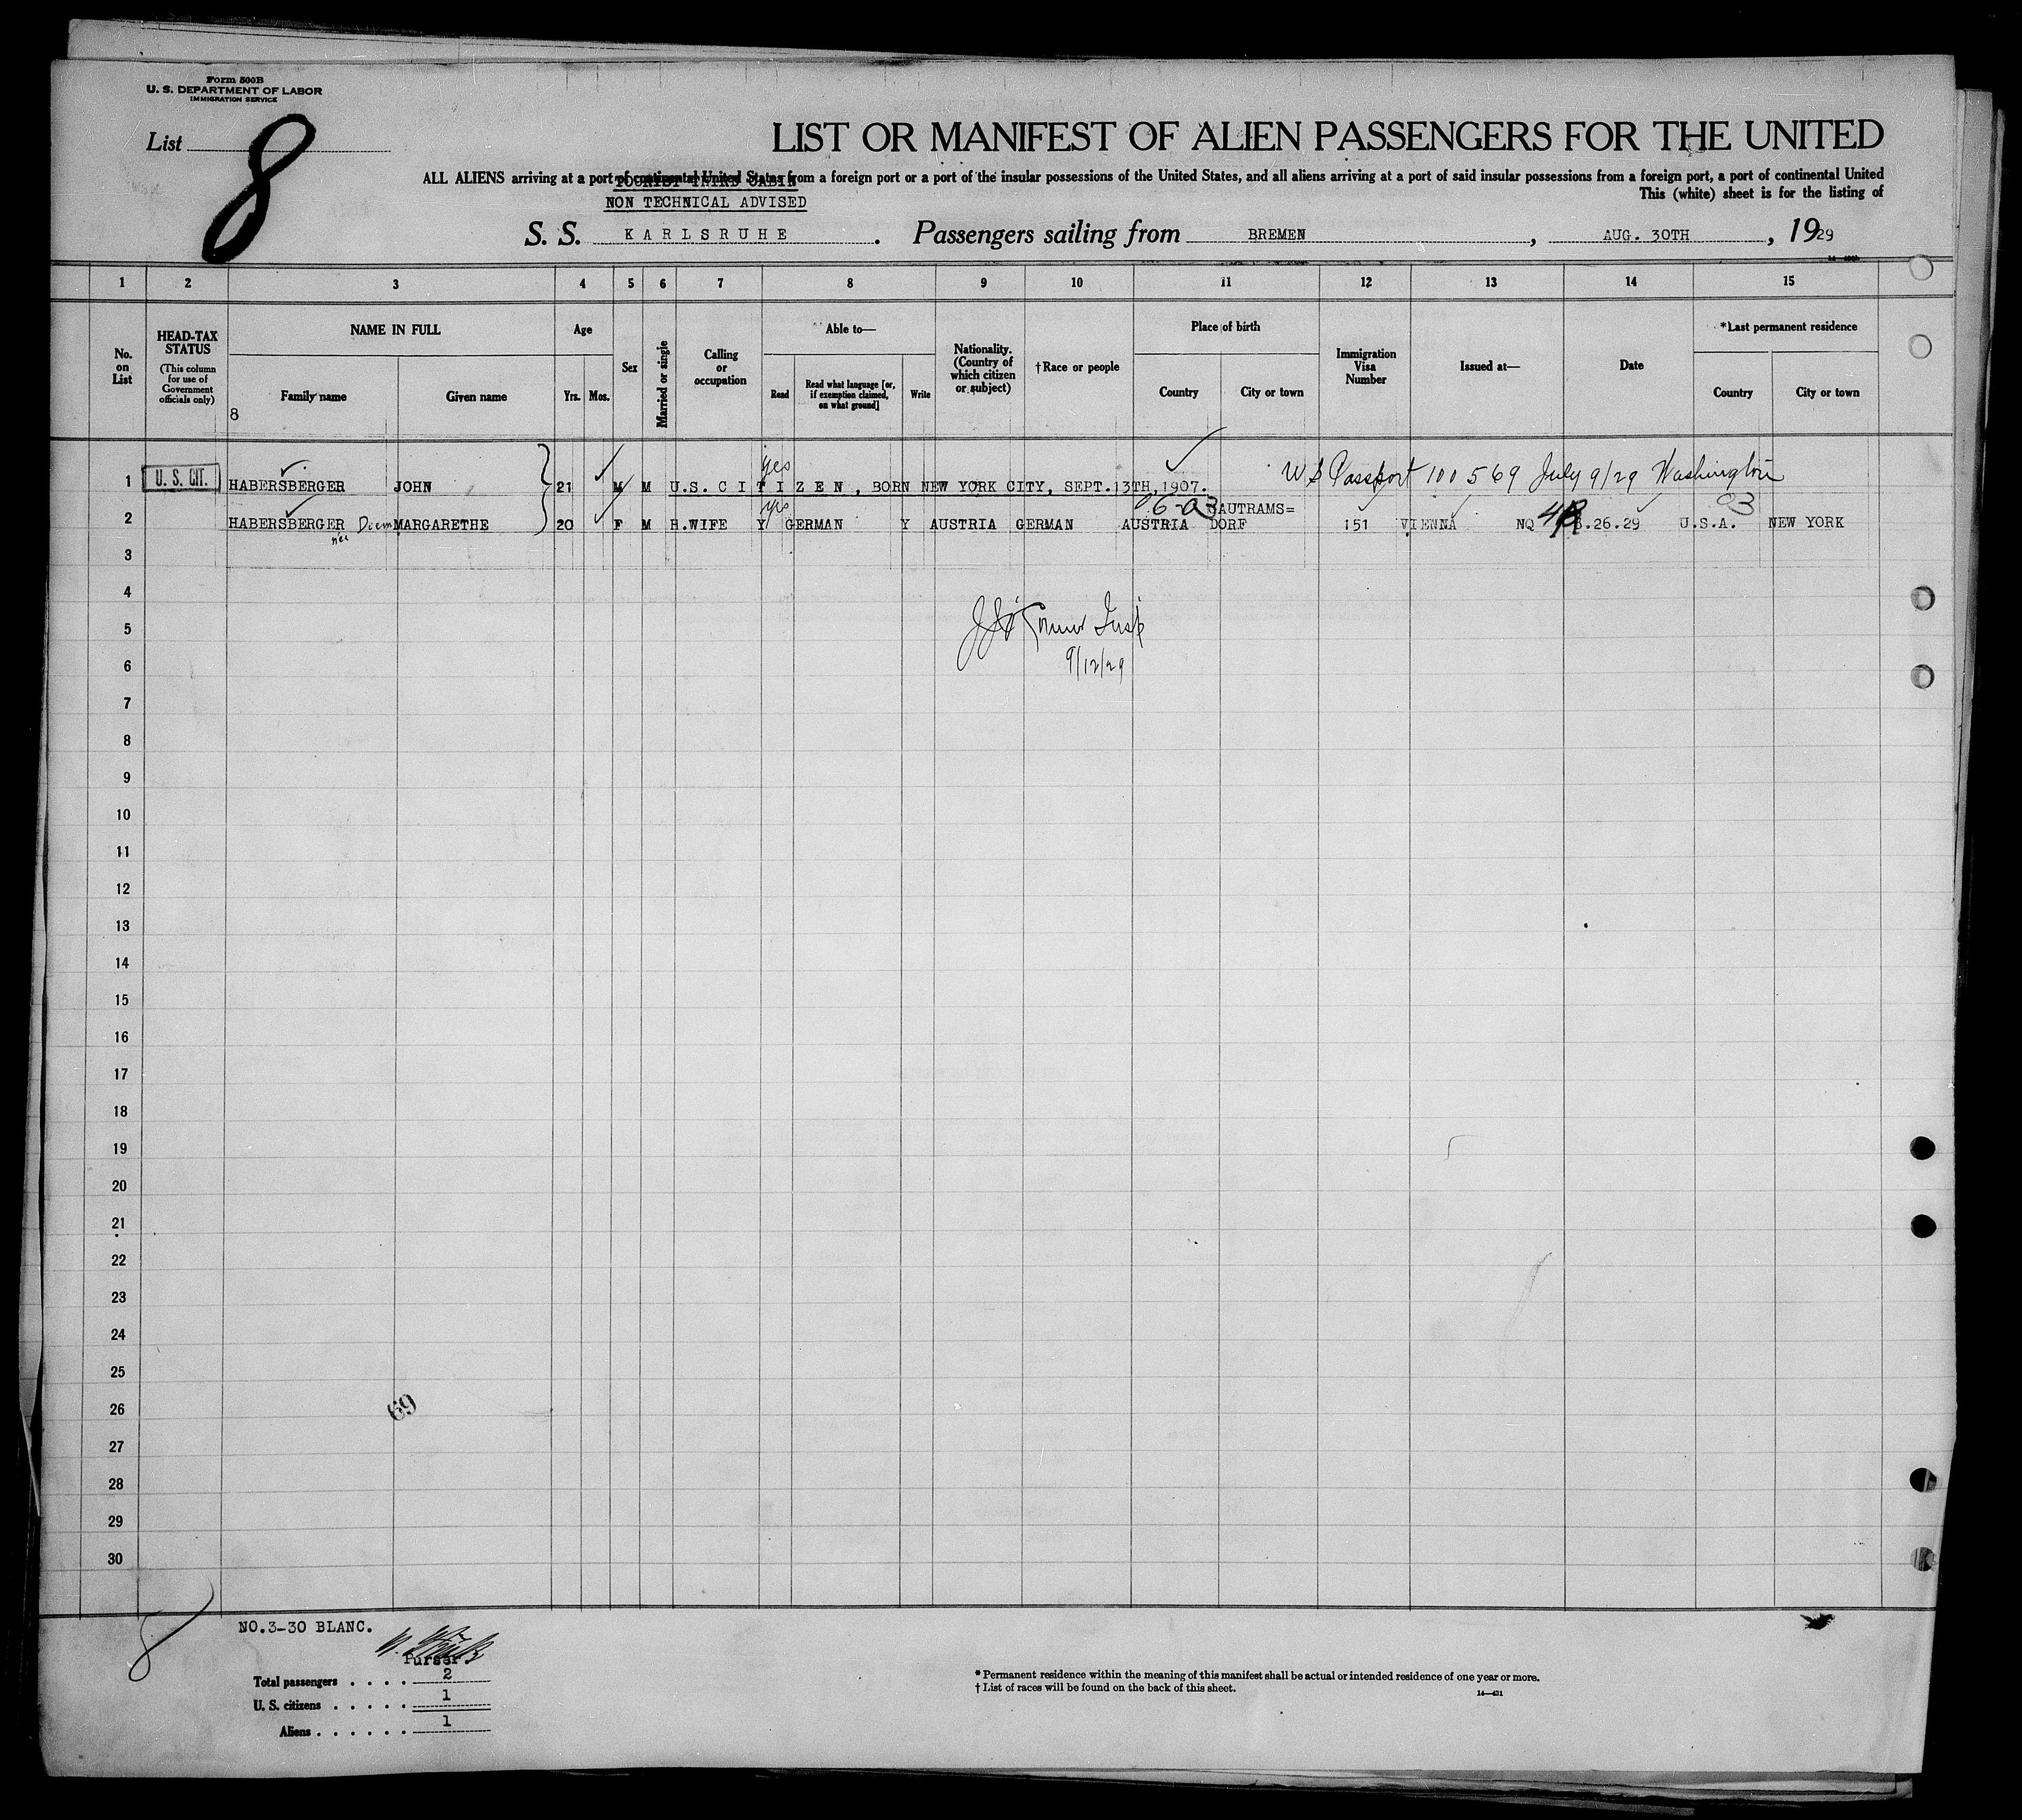 Form 500B
U. S. DEPARTMENT OF LABOR
IMMIGRATION SERVICE
List 8
LIST OR MANIFEST OF ALIEN PASSENGERS FOR THE UNITED
ALL ALIENS arriving at a port of continental United States from a foreign port or a port of the insular possessions of the United States, and all aliens arriving at a port of said insular possessions from a foreign port, a port of continental United
TOURIST THIRD CABIN
This (white) sheet is for the listing of
NON TECHNICAL ADVISED
S. S. KARLSRUHE. Passengers sailing from BREMEN, AUG. 30TH, 1929
1 2 3 4 5 6 7 8 9 10 11 12 13 14 15
No. on List
HEAD-TAX STATUS
(This column for use of Government officials only)
NAME IN FULL
Family name
Given name
8
Age
Yrs. Mos.
Sex
Married or single
Calling or occupation
Able to—
Read
Read what language [or, if exemption claimed, on what ground]
Write
Nationality. (Country of which citizen or subject)
† Race or people
Place of birth
Country
City or town
Immigration Visa Number
Issued at—
Date
* Last permanent residence
Country
City or town
yes
1 U. S. CIT. HABERSBERGER JOHN 21 M M U.S. CITIZEN, BORN NEW YORK CITY, SEPT.13TH,1907. US Passport 100569 July 9/29 Washington
yes
2 HABERSBERGER née Diem MARGARETHE 20 F M H.WIFE Y GERMAN Y AUSTRIA GERMAN AUSTRIA SAUTRAMS=DORF 151 VIENNA NQ 8.26.29 U.S.A. NEW YORK
3
4
5
6
9/12/29
7
8
9
10
11
12
13
14
15
16
17
18
19
20
21
22
23
24
25
26
69
27
28
29
30
8
NO.3-30 BLANC.
Purser
Total passengers . . . . 2
U. S. citizens . . . . . 1
Aliens . . . . . . 1
* Permanent residence within the meaning of this manifest shall be actual or intended residence of one year or more.
† List of races will be found on the back of this sheet.
14—431